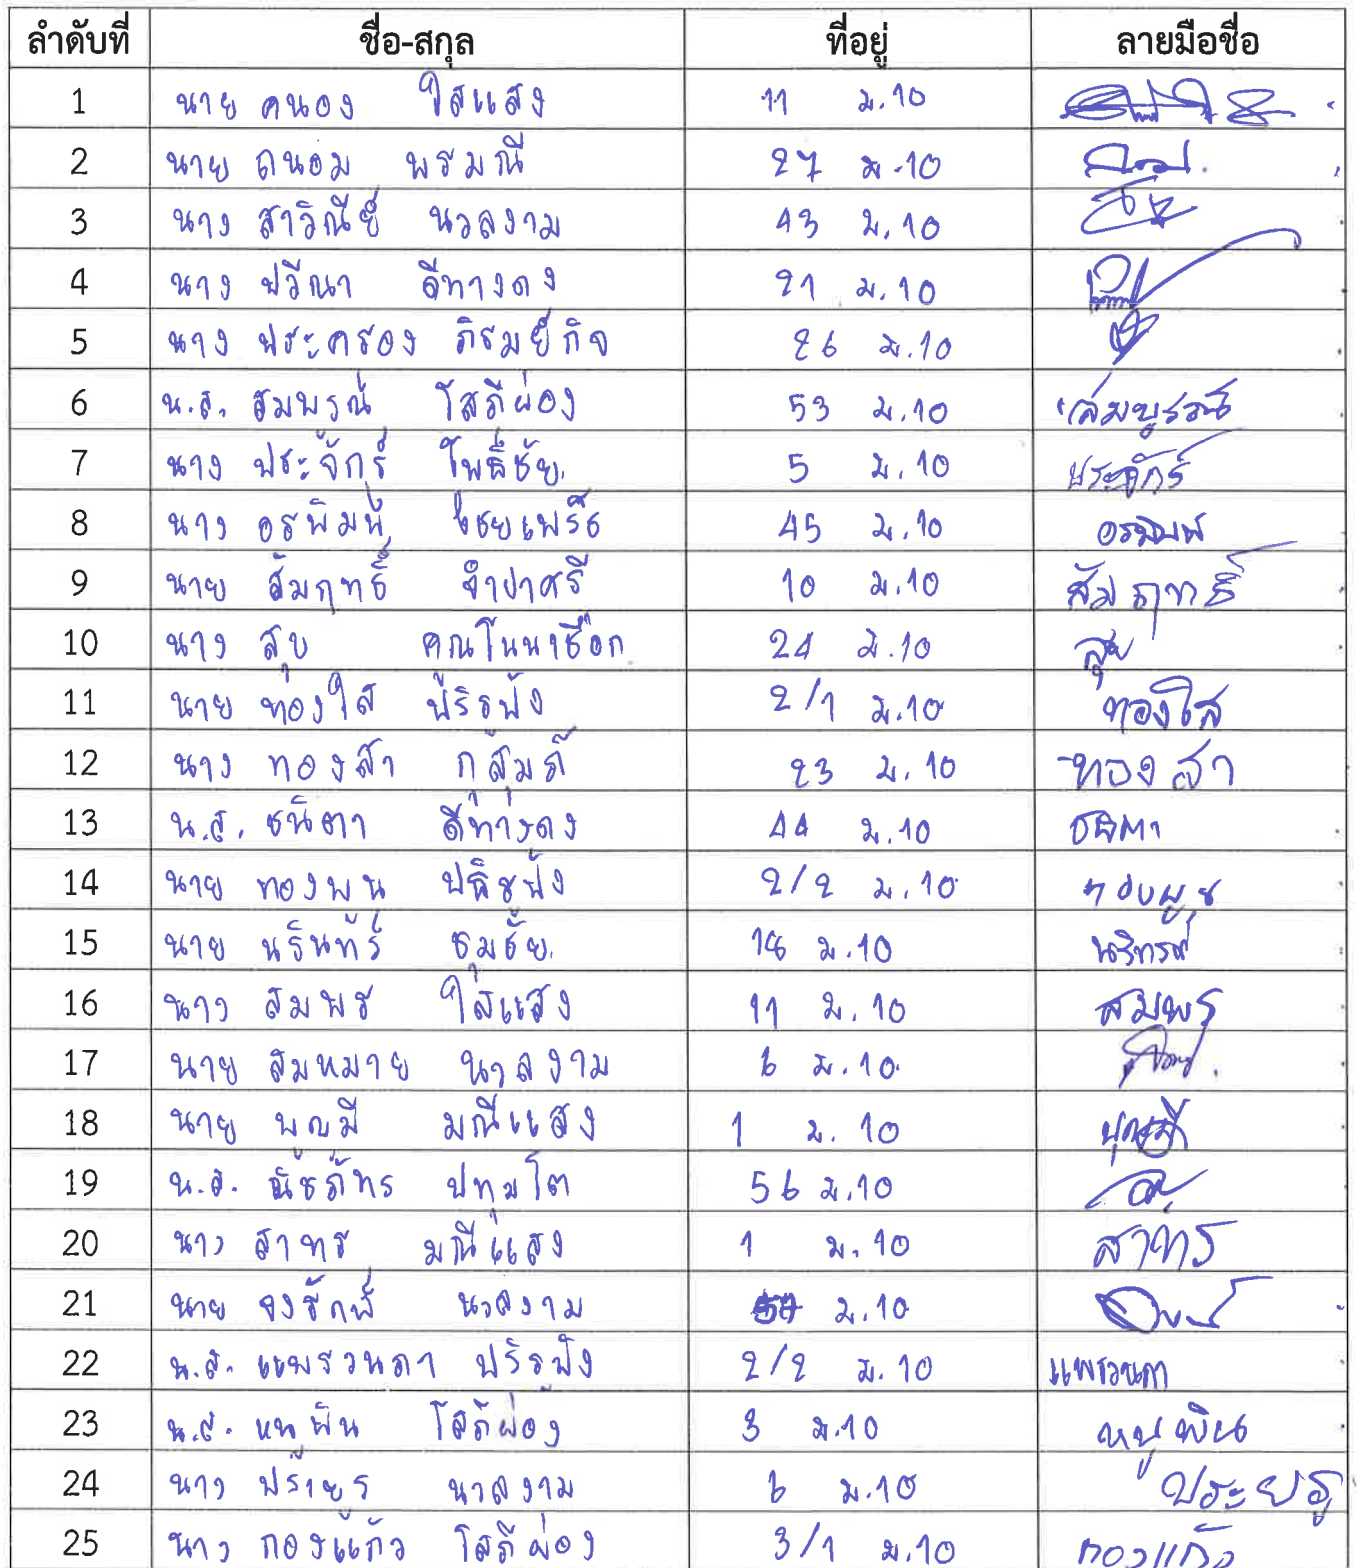 ลำดับที่ ชื่อ-สกุล ที่อยู่ ลายมือชื่อ
1 นาย คนอง ใสแสง 11 ม.10
2 นาย ถนอม พรมณี 27 ม.10
3 นาง สาวิณีย์ นวลงาม 43 ม.10
4 นาง ปวีณา ดีทางดง 21 ม.10
5 นาง ประครอง ภิรมย์กิจ 26 ม.10
6 น.ส. สมบรูณ์ โสภีผ่อง 53 ม.10 สมบูรณ์
7 นาง ประจักร์ โพธิ์ชัย 5 ม.10 ประจักร์
8 นาง อรพิมพ์ 45 ม.10 อรพิมพ์
9 นาย สัมฤทธิ์ จำปาศรี 10 ม.10 สัมฤทธิ์
10 นาง สุบ คณโนนเชือก 24 ม.10 สุบ
11 นาย ทองใส 2/1 ม.10 ทองใส
12 นาง ทองสา กุสุมภ์ 23 ม.10 ทองสา
13 น.ส. ชนิตา ดีทางดง 44 ม.10 ชนิตา
14 นาย ทองพูน 2/2 ม.10
15 นาย นรินทร์ ชมชัย 18 ม.10
16 นาง สมพร ใสแสง 11 ม.10 สมพร
17 นาย สมหมาย นวลงาม 6 ม.10
18 นาย บุญมี มณีแสง 1 ม.10 บุญมี
19 น.ส. ณัชภัทร ปทุมโต 56 ม.10
20 นาง สาทร มณีแสง 1 ม.10 สาทร
21 นาย จงรักพ์ นวลงาม ม.10
22 น.ส. แพรวนภา 2/2 ม.10 แพรวนภา
23 น.ส. หนูพิน โสภีผ่อง 3 ม.10 หนูพิน
24 นาง นวลงาม 6 ม.10 ประยูร
25 นาง กองแก้ว โสภีผ่อง 3/1 ม.10 กองแก้ว